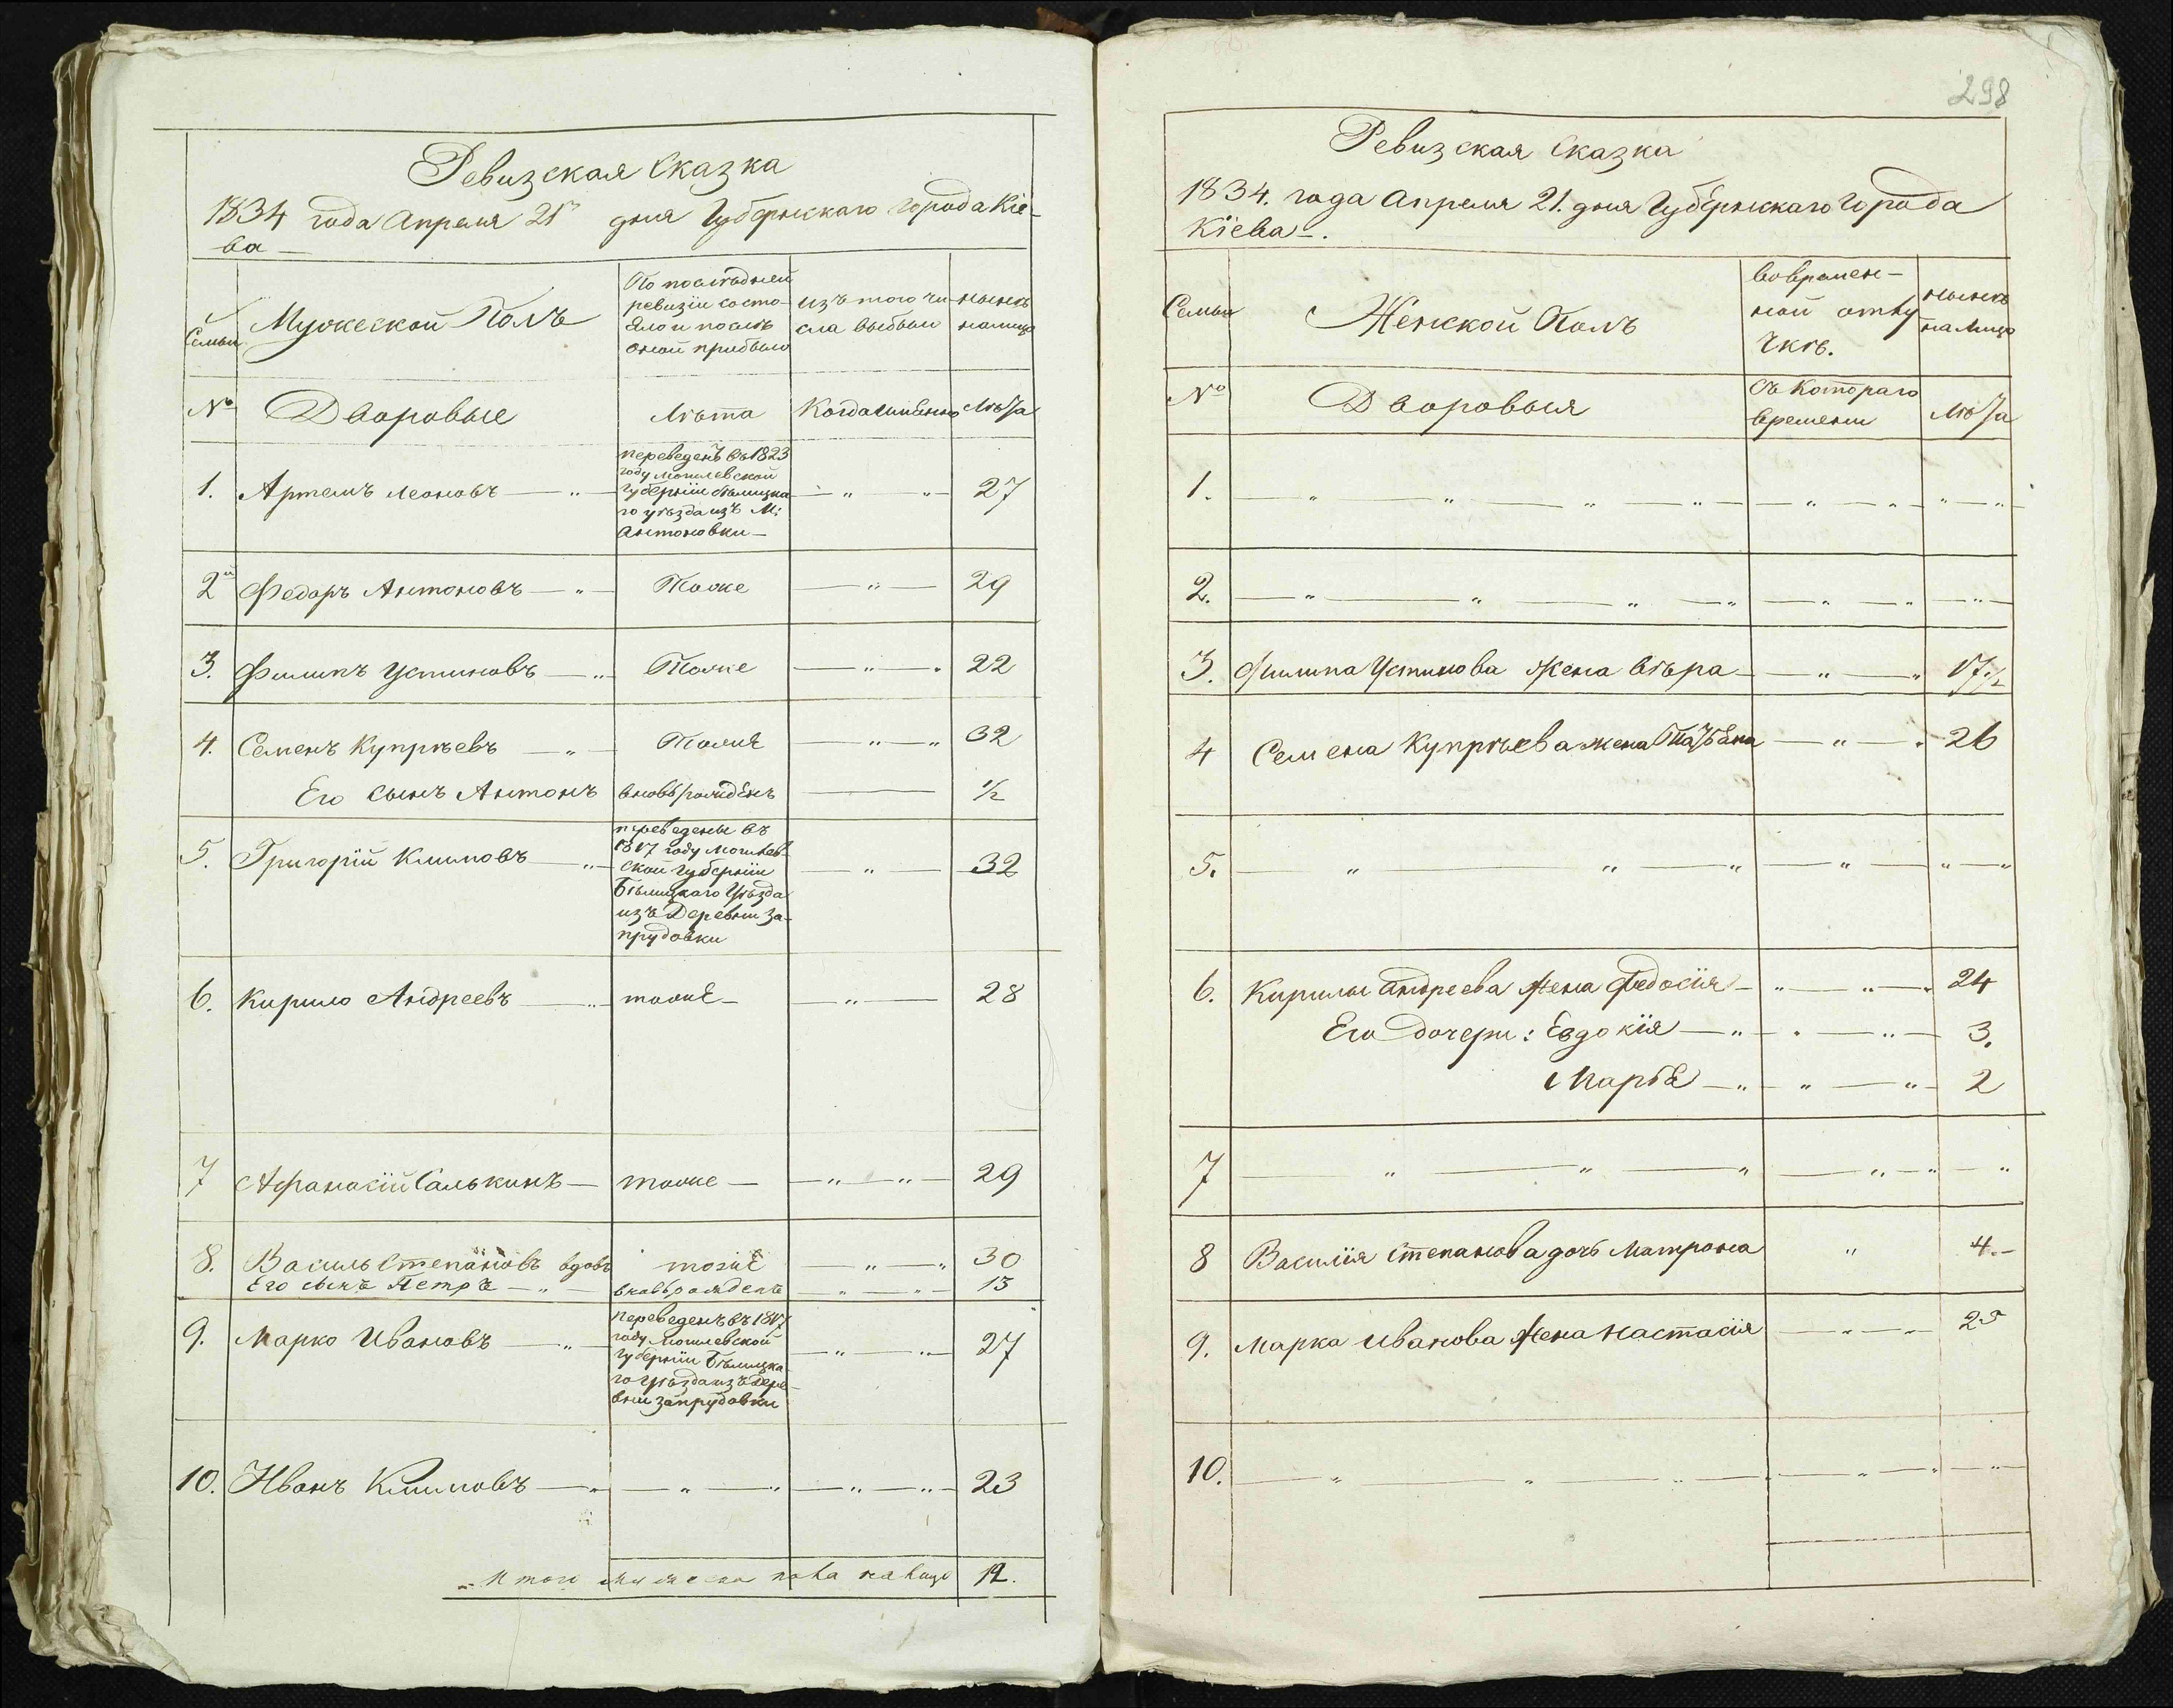 Ревизская Сказка
1834 года Апреля 21го дня Губернскаго города Кіе-
ва
Семьи
Мужеской Полъ
По последней
ревизіи состо-
яло и после
оной прибыло
изъ того чи-
сла выбыло
ныне
налицо
№
Дворовые
Лѣта
Когда именно
Лѣта
1. Артемъ Леоновъ — „ —
переведенъ въ 1823
году Могилевской
Губерніи Бѣлицка-
го уѣзда изъ М:
Антоновки —
— „ „ — 27
2й Федоръ Антоновъ — „ — Тоже — „ — 29
3. Филипъ Устиновъ — „ Тоже — „ — „ 22
4. Семенъ Купрѣевъ — „ — Тоже — „ — „ 32
Его сынъ Антонъ вновь рожденъ — ½
5. Григорій Климовъ — „ —
переведены въ
1817 году Могилев-
ской Губерніи
Бѣлицкаго Уѣзда
изъ Деревни За-
прудовки
— „ — 32
6. Кирило Андреевъ — „ тоже — — „ — 28
7 Афанасій Салькинъ — тоже — — „ — „ — 29
8. Василь Степановъ вдовъ тоже — „ — „ 30
Его сынъ Петръ — „ — вновь рожденъ — „ — „ — 13
9. Марко Ивановъ — „ —
переведенъ въ 1817
году Могилевской
Губерніи Бѣлицка-
го Уѣзда изъ Дере-
вни Запрудовки
— „ — „ — 27
10. Иванъ Климовъ — „ — „ — „ — „ — „ — 23
Итого мужеска пола налицо 12.
298
Ревизская Сказка
1834. года Апреля 21. дня Губернскаго Города
Кіева —.
Семьи
Женской Полъ
Во времен-
ной отлу-
чкѣ.
ныне
на лицо
№
Дворовыя
Съ Котораго
времени
Лѣта
1. — „ — „ — „ — „ — „ — „ — „ — „ —
2. — „ — „ — „ — „ — „ — „ — „ —
3. Филипа Устинова Жена Вѣра — — „ — „ 17½
4 Семена Купрѣева жена Татьяна — „ — „ 26
5. — „ — „ — „ — „ — „ — „
6. Кирилы Андреева Жена Федосія — „ — „ — „ 24
Его Дочери: Евдокія — „ — „ — „ — 3.
Марѣя — „ — „ — „ — 2
7 — „ — „ — „ — „ — „ — „
8 Василія Степанова дочь Матрона „ 4. —
9. Марка Иванова Жена Настасія — „ — „ — 25
10. — „ — „ — „ — „ — „ — „ —